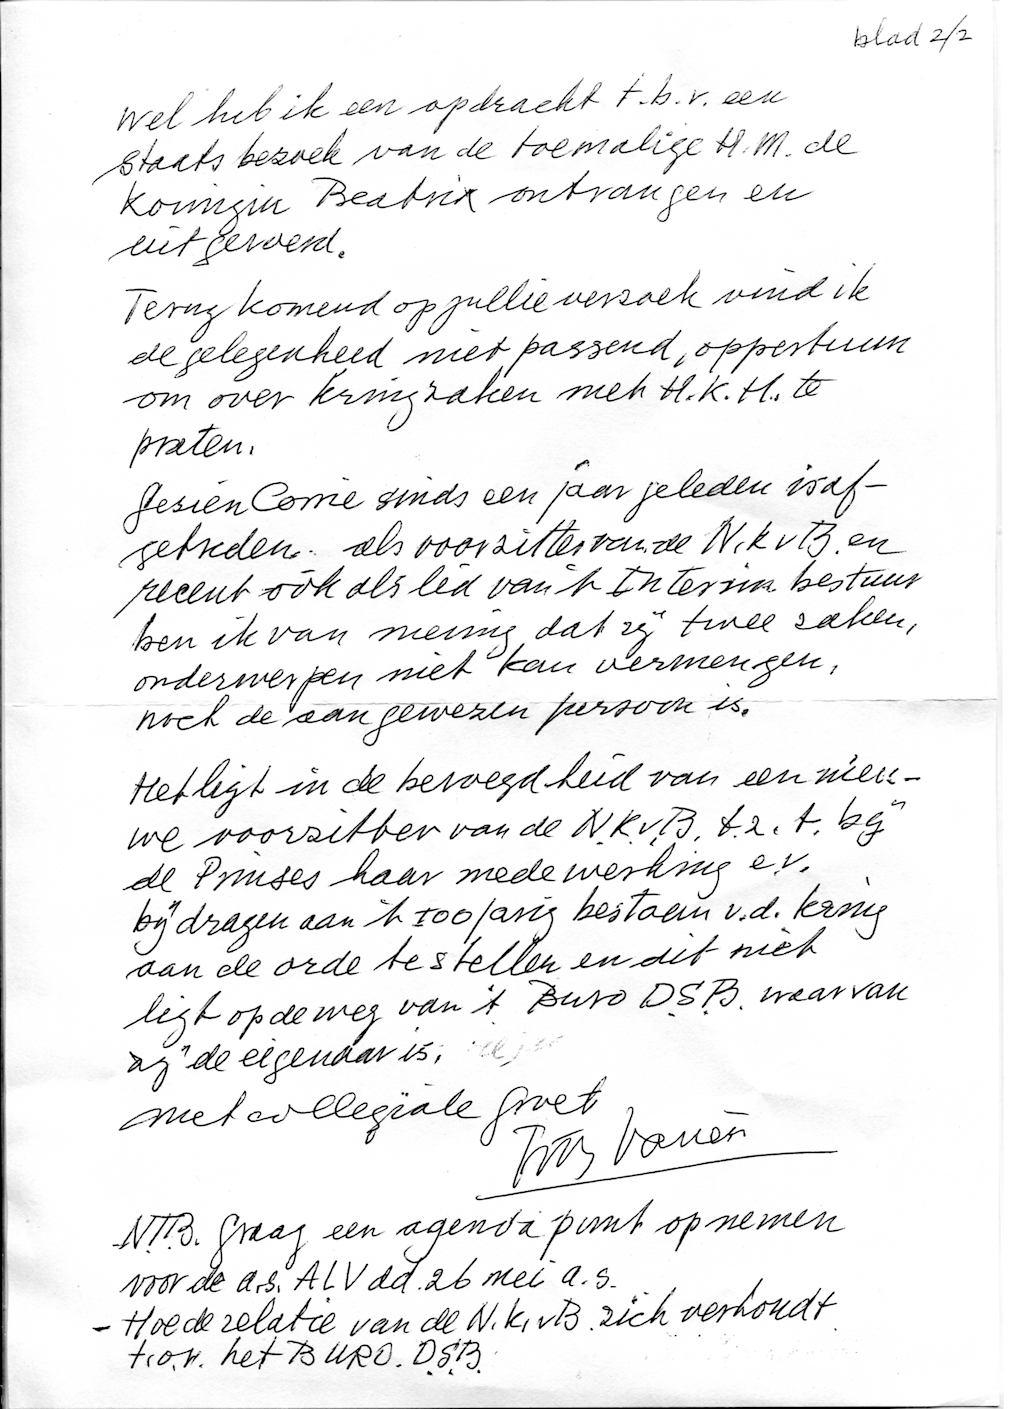 blad 2/2
Wel heb ik een opdracht t.b.v. een
staats bezoek van de toemalige H.M. de
Koningin Beatrix ontvangen en
uitgevoerd.
Terug komend op jullie verzoek vind ik
de gelegenheid niet passend, opportuun
om over kringzaken met H.K.H. te
praten.
Gezien Corrie sinds een jaar geleden is af-
getreden. als voorzitter van de N.K.v.B. en
recent ook als lid van 't Interim bestuur
ben ik van mening dat zij twee zaken,
onderwerpen niet kan vermengen,
noch de aangewezen persoon is.
Het ligt in de bevoegdheid van een nieu-
we voorzitter van de N.K.v.B. t.z.t. bij
de Prinses haar medewerking e.v.
bijdragen aan 't 100 jarig bestaan v.d. kring
aan de orde te stellen en dit niet
ligt op de weg van 't Buro D.S.B. waarvan
zij de eigenaar is.
met collegiale groet
NTB. Graag een agenda punt opnemen
voor de a.s. ALV dd. 26 mei a.s.
- Hoe de relatie van de N.K.v.B. zich verhoudt
t.o.v. het BURO. D.S.B.